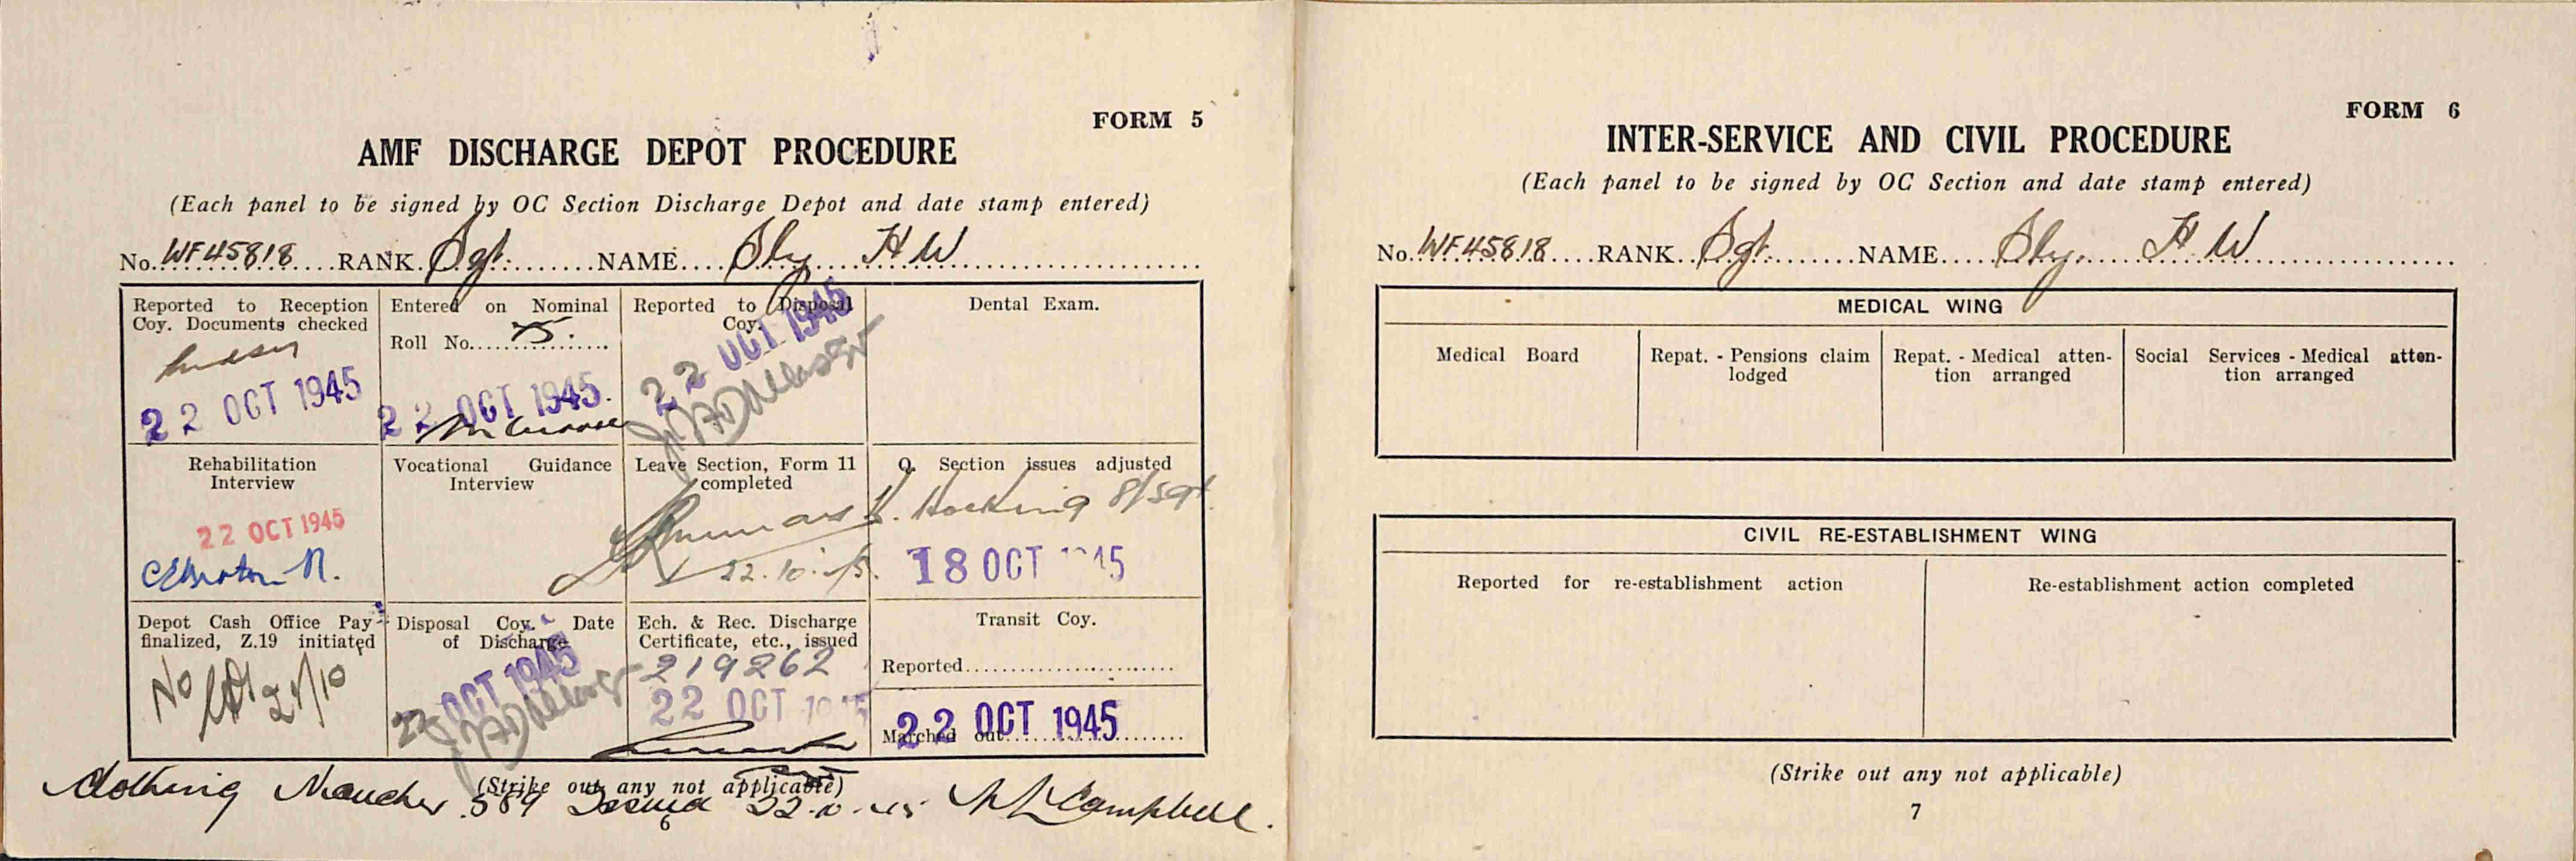 FORM 5
AMF DISCHARGE DEPOT PROCEDURE
(Each panel to be signed by OC Section Discharge Depot and date stamp entered)
No. WF45818 RANK Sgt. NAME Sly H W
Reported to Reception
Coy. Documents checked
22 OCT 1945
Entered on Nominal
Roll No. 75.
22 OCT 1945
Reported to Disposal
Coy.
22 OCT 1945
Dental Exam.
Rehabilitation
Interview
22 OCT 1945
Vocational Guidance
Interview
Leave Section, Form 11
completed
22.10.45.
Q. Section issues adjusted
Hocking S/Sgt
18 OCT 45
Depot Cash Office Pay
finalized, Z.19 initiated
No
21/10
Disposal Coy. Date
of Discharge
22 OCT 1945
Ech. & Rec. Discharge
Certificate, etc., issued
219262
22 OCT 1945
Transit Coy.
Reported
22 OCT 1945
Marched out
(Strike out any not applicable)
Clothing Voucher 589 Issued 22.10.45 Campbell.
6
FORM 6
INTER-SERVICE AND CIVIL PROCEDURE
(Each panel to be signed by OC Section and date stamp entered)
No. WF45818 RANK Sgt. NAME Sly. H W
MEDICAL WING
Medical Board
Repat. - Pensions claim
lodged
Repat. - Medical atten-
tion arranged
Social Services - Medical atten-
tion arranged
CIVIL RE-ESTABLISHMENT WING
Reported for re-establishment action
Re-establishment action completed
(Strike out any not applicable)
7